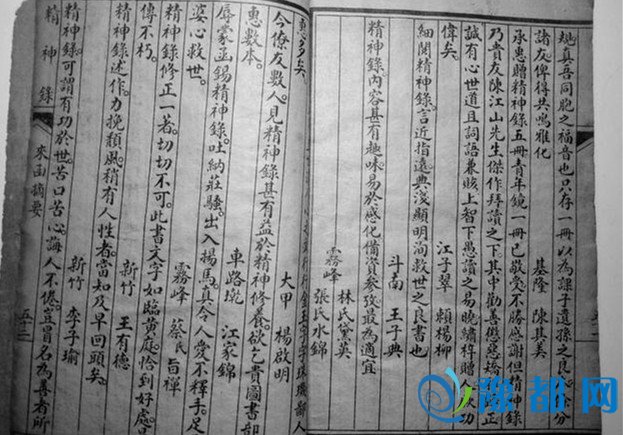 規真吾同胞之福音也只存一冊以為課子遺孫之良 分
諸友俾得共鳴雅化
基隆 陳其美
承惠贈精神錄五冊青年鏡一冊已敬受不勝感謝但精神錄
乃貴友陳江山先生傑作拜讀之下其中勸善懲惡矯正
誠有心世道且詞語兼賅上智下愚讀之易曉 贈人 功
偉矣。 江子翠 賴楊柳
細閱精神錄言近指遠典淺顯明洵救世之良書也
斗南 王子典
精神錄內容甚有趣味易於感化備資參攷最為適宜
霧峰 林氏黛英
張氏水錦
惠多矣。 字字珠璣
今僚友數人見精神錄甚有益於精神修養。欲乞貴圖書部
惠數本。 大甲 楊啟明
辱蒙函錫精神錄。吐納莊騷。出入揚馬。真令人愛不釋手。足
車路墘 江家錦
婆心救世。 霧峰 蔡氏旨禪
精神錄修正一著。切切不可。此書文字如臨黃庭。恰到好處。
傳不朽。 新竹 王有德
精神錄述作。力挽頹風。稍有人性者。當知及早回頭矣。
新竹 李子瑜
精神錄。可謂有功於世。苦口苦心。誨人不倦。豈冒名為善有所
精神錄 來函摘要 五十三
豫都网